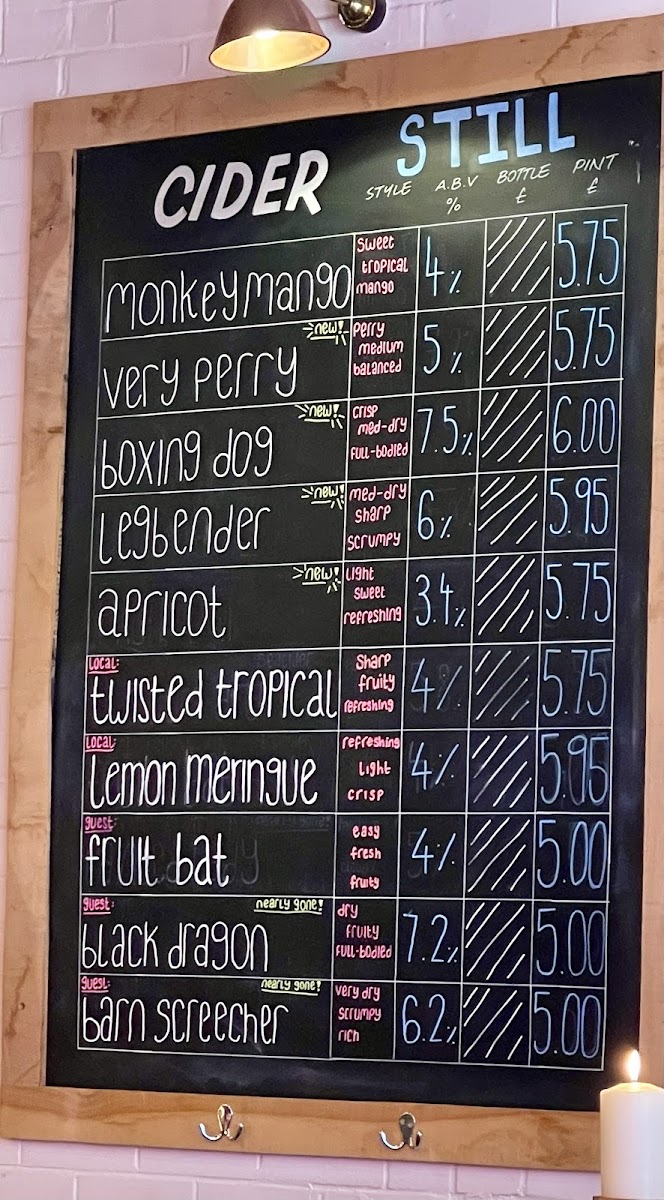 STILL
CIDER
STYLE A.B.V % BOTTLE £ PINT £
monkey mango sweet tropical mango 4% 5.75
very perry new! perry medium balanced 5% 5.75
boxing dog new! crisp med-dry full-bodied 7.5% 6.00
legbender new! med-dry sharp scrumpy 6% 5.95
apricot new! light sweet refreshing 3.4% 5.75
local: twisted tropical sharp fruity refreshing 4% 5.75
local: lemon meringue refreshing light crisp 4% 5.95
guest: fruit bat easy fresh fruity 4% 5.00
guest: black dragon nearly gone! dry fruity full-bodied 7.2% 5.00
guest: barn screecher nearly gone! very dry scrumpy rich 6.2% 5.00